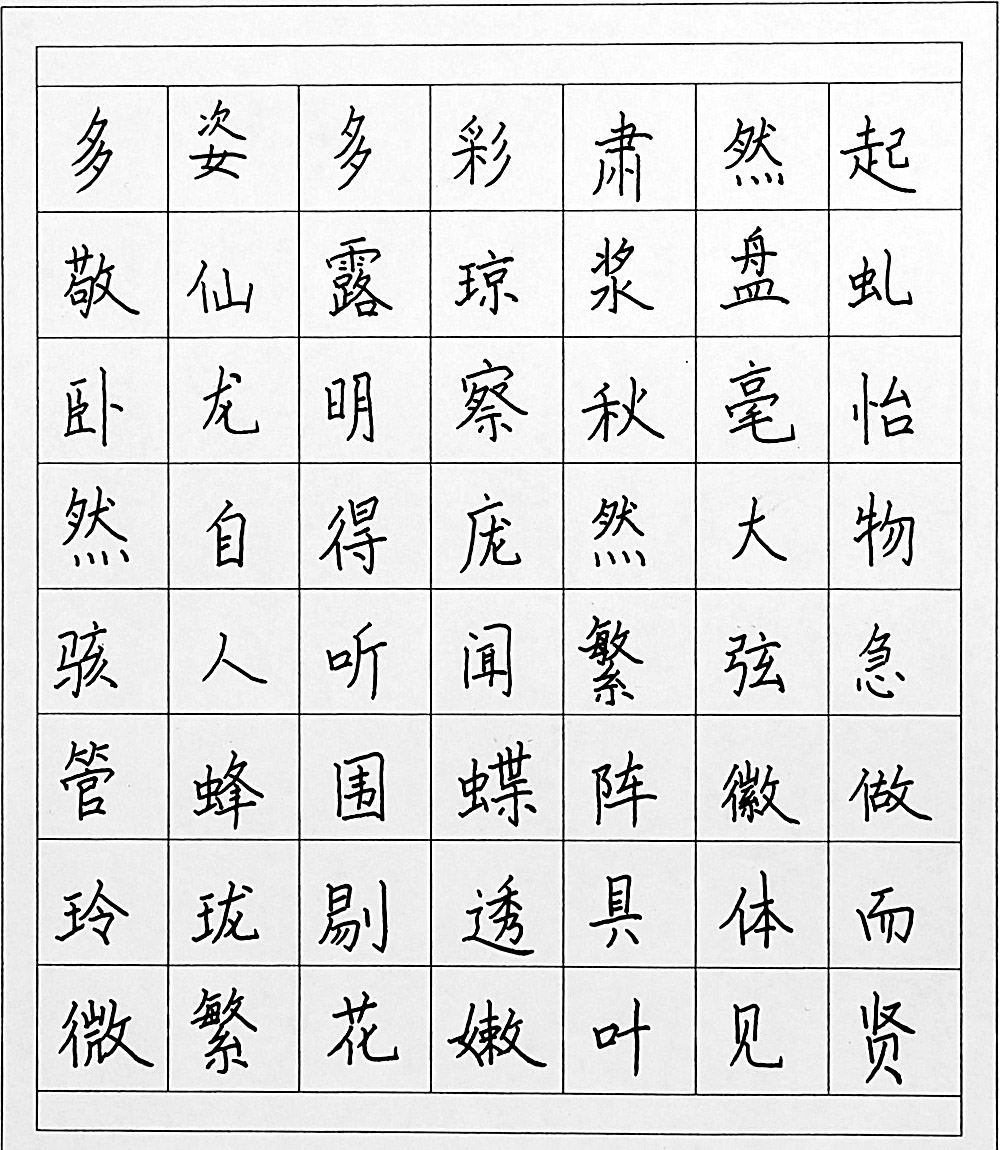 多姿多彩肃然起
敬仙露琼浆盘虬
卧龙明察秋毫怡
然自得庞然大物
骇人听闻繁弦急
管蜂围蝶阵徽做
玲珑剔透具体而
微繁花嫩叶见贤